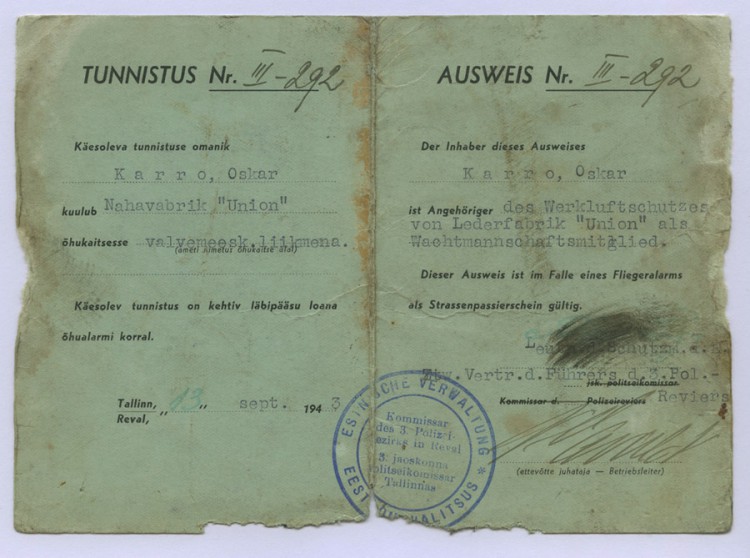 TUNNISTUS Nr. III-292
Käesoleva tunnistuse omanik
Karro, Oskar
kuulub Nahavabrik "Union"
õhukaitsesse valvemeesk.liikmena.
(ameti nimetus õhukaitse alal)
Käesolev tunnistus on kehtiv läbipääsu loana
õhualarmi korral.
Tallinn,
Reval, "13" sept. 1943
AUSWEIS Nr. III-292
Der Inhaber dieses Ausweises
Karro, Oskar
ist Angehöriger des Werkluftschutzes
von Lederfabrik "Union" als
Wachtmannschaftsmitglied.
Dieser Ausweis ist im Falle eines Fliegeralarms
als Strassenpassierschein gültig.
Ztw.Vertr.d.Führers d.3.Pol.-
jsk. politseikomissar
Kommissar d. Polizeireviers Reviers
(ettevõtte juhataja — Betriebsleiter)
ESTNISCHE VERWALTUNG
Kommissar
des 3. Polizei-
bezirks in Reval
3. jaoskonna
politseikomissar
Tallinnas
EESTI OMAVALITSUS